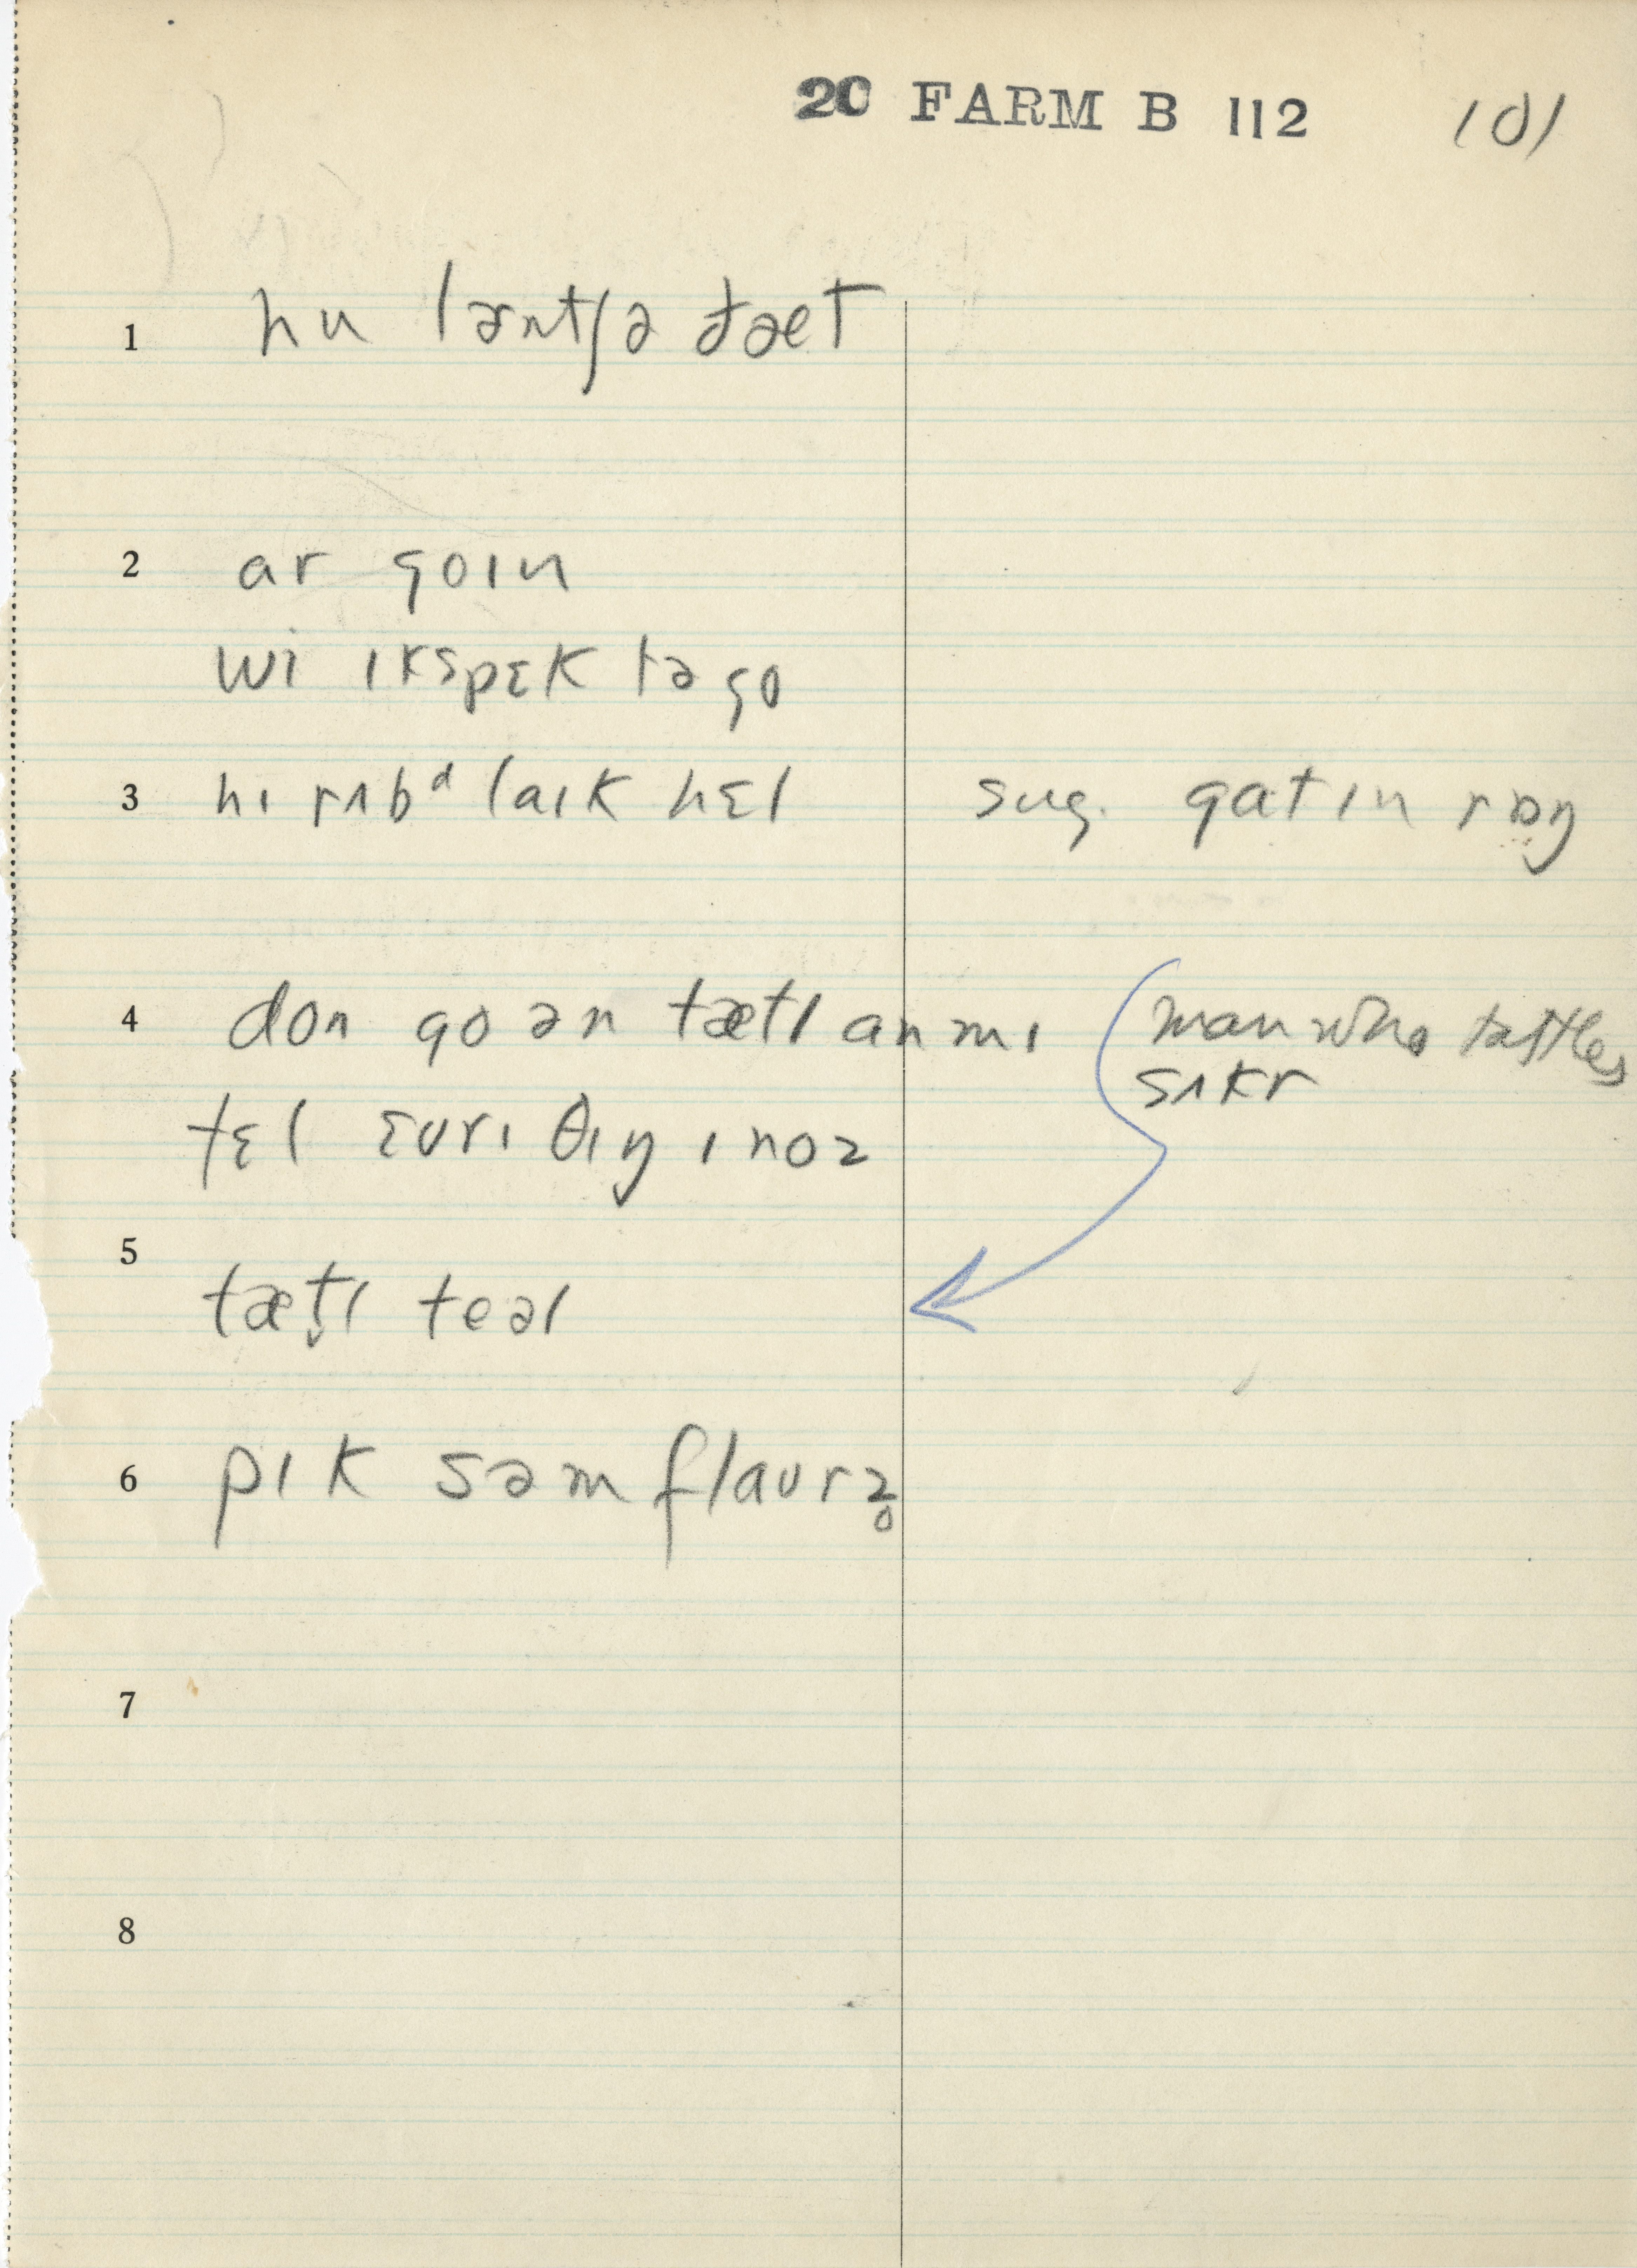 20 FARM B 112 101
1 hu lərntʃə ðæt
2 ar goɪn
wi ɪkspɛk tə go
3 hɪ rʌbᵈ laɪk hɛl sug. gatɪn rɒŋ
4 don go ən tætl an mɪ (man who tattles
sʌkr
tɛl ɛvrɪ θɪŋ ɪ noz
5
tæt̬l teəl
6 pɪk səm flaurz̥
7
8